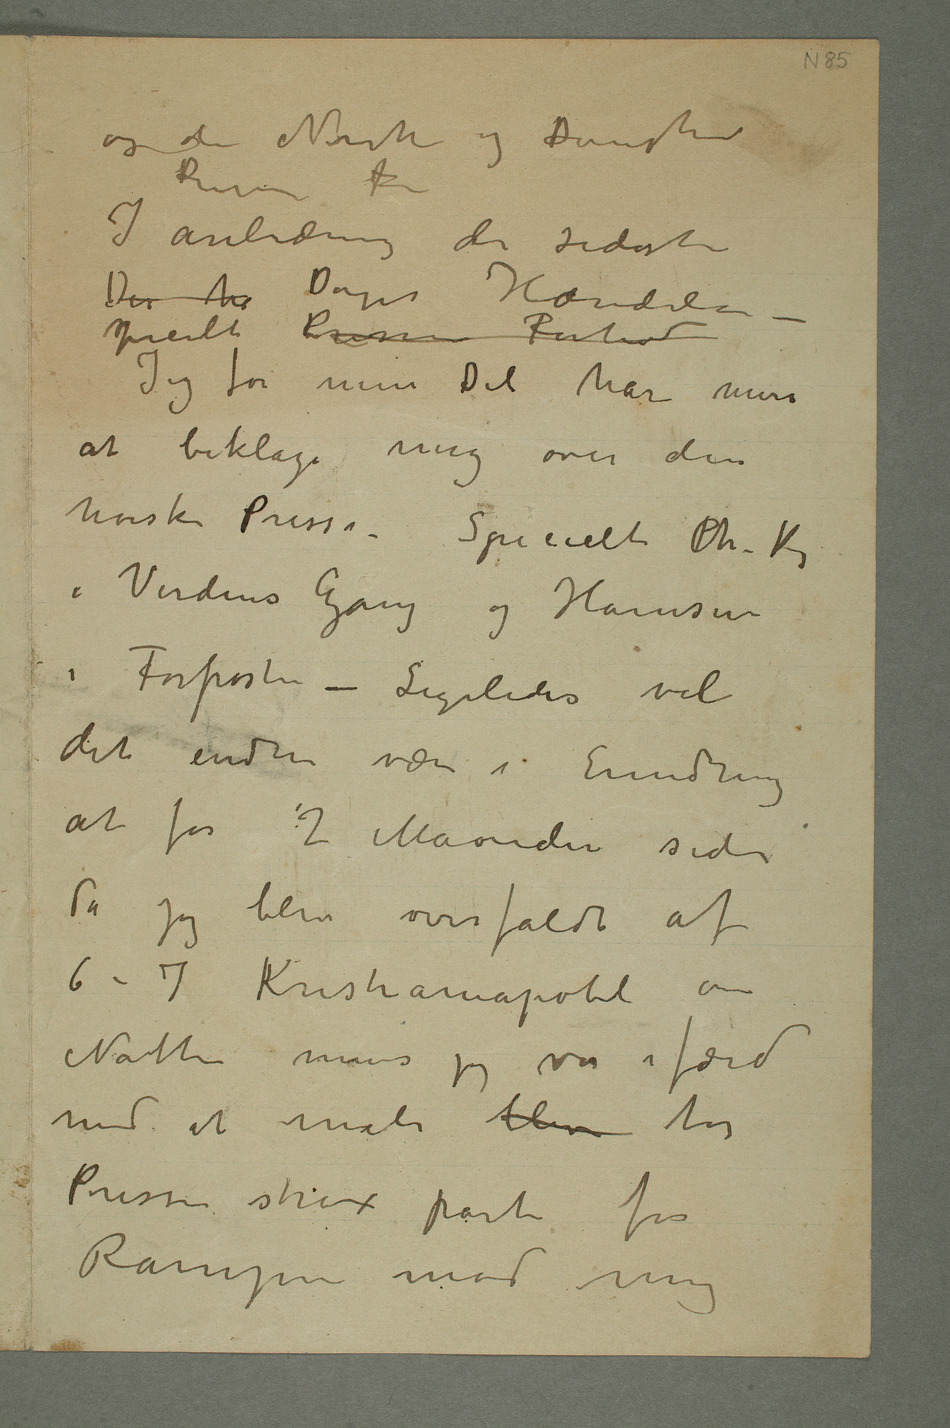 N 85
og de Norske og Danske
I anledning de sidste
Der ha Dages Hændelser –
specielt Pressen
Jeg for min Del har mere
at beklage mig over den
norske Presse. Specielt Chr. Kg
i Verdens Gang og Hamsun
i Forposten – Ligeledes vil
det endnu være i Erindring
at for 2 Maaneder siden
da jeg blev overfaldt af
6–7 Kristianiapøbel om
Natten mens jeg var ifærd
med at male blev tog
Pressen strax parti for
Rampen mod mig